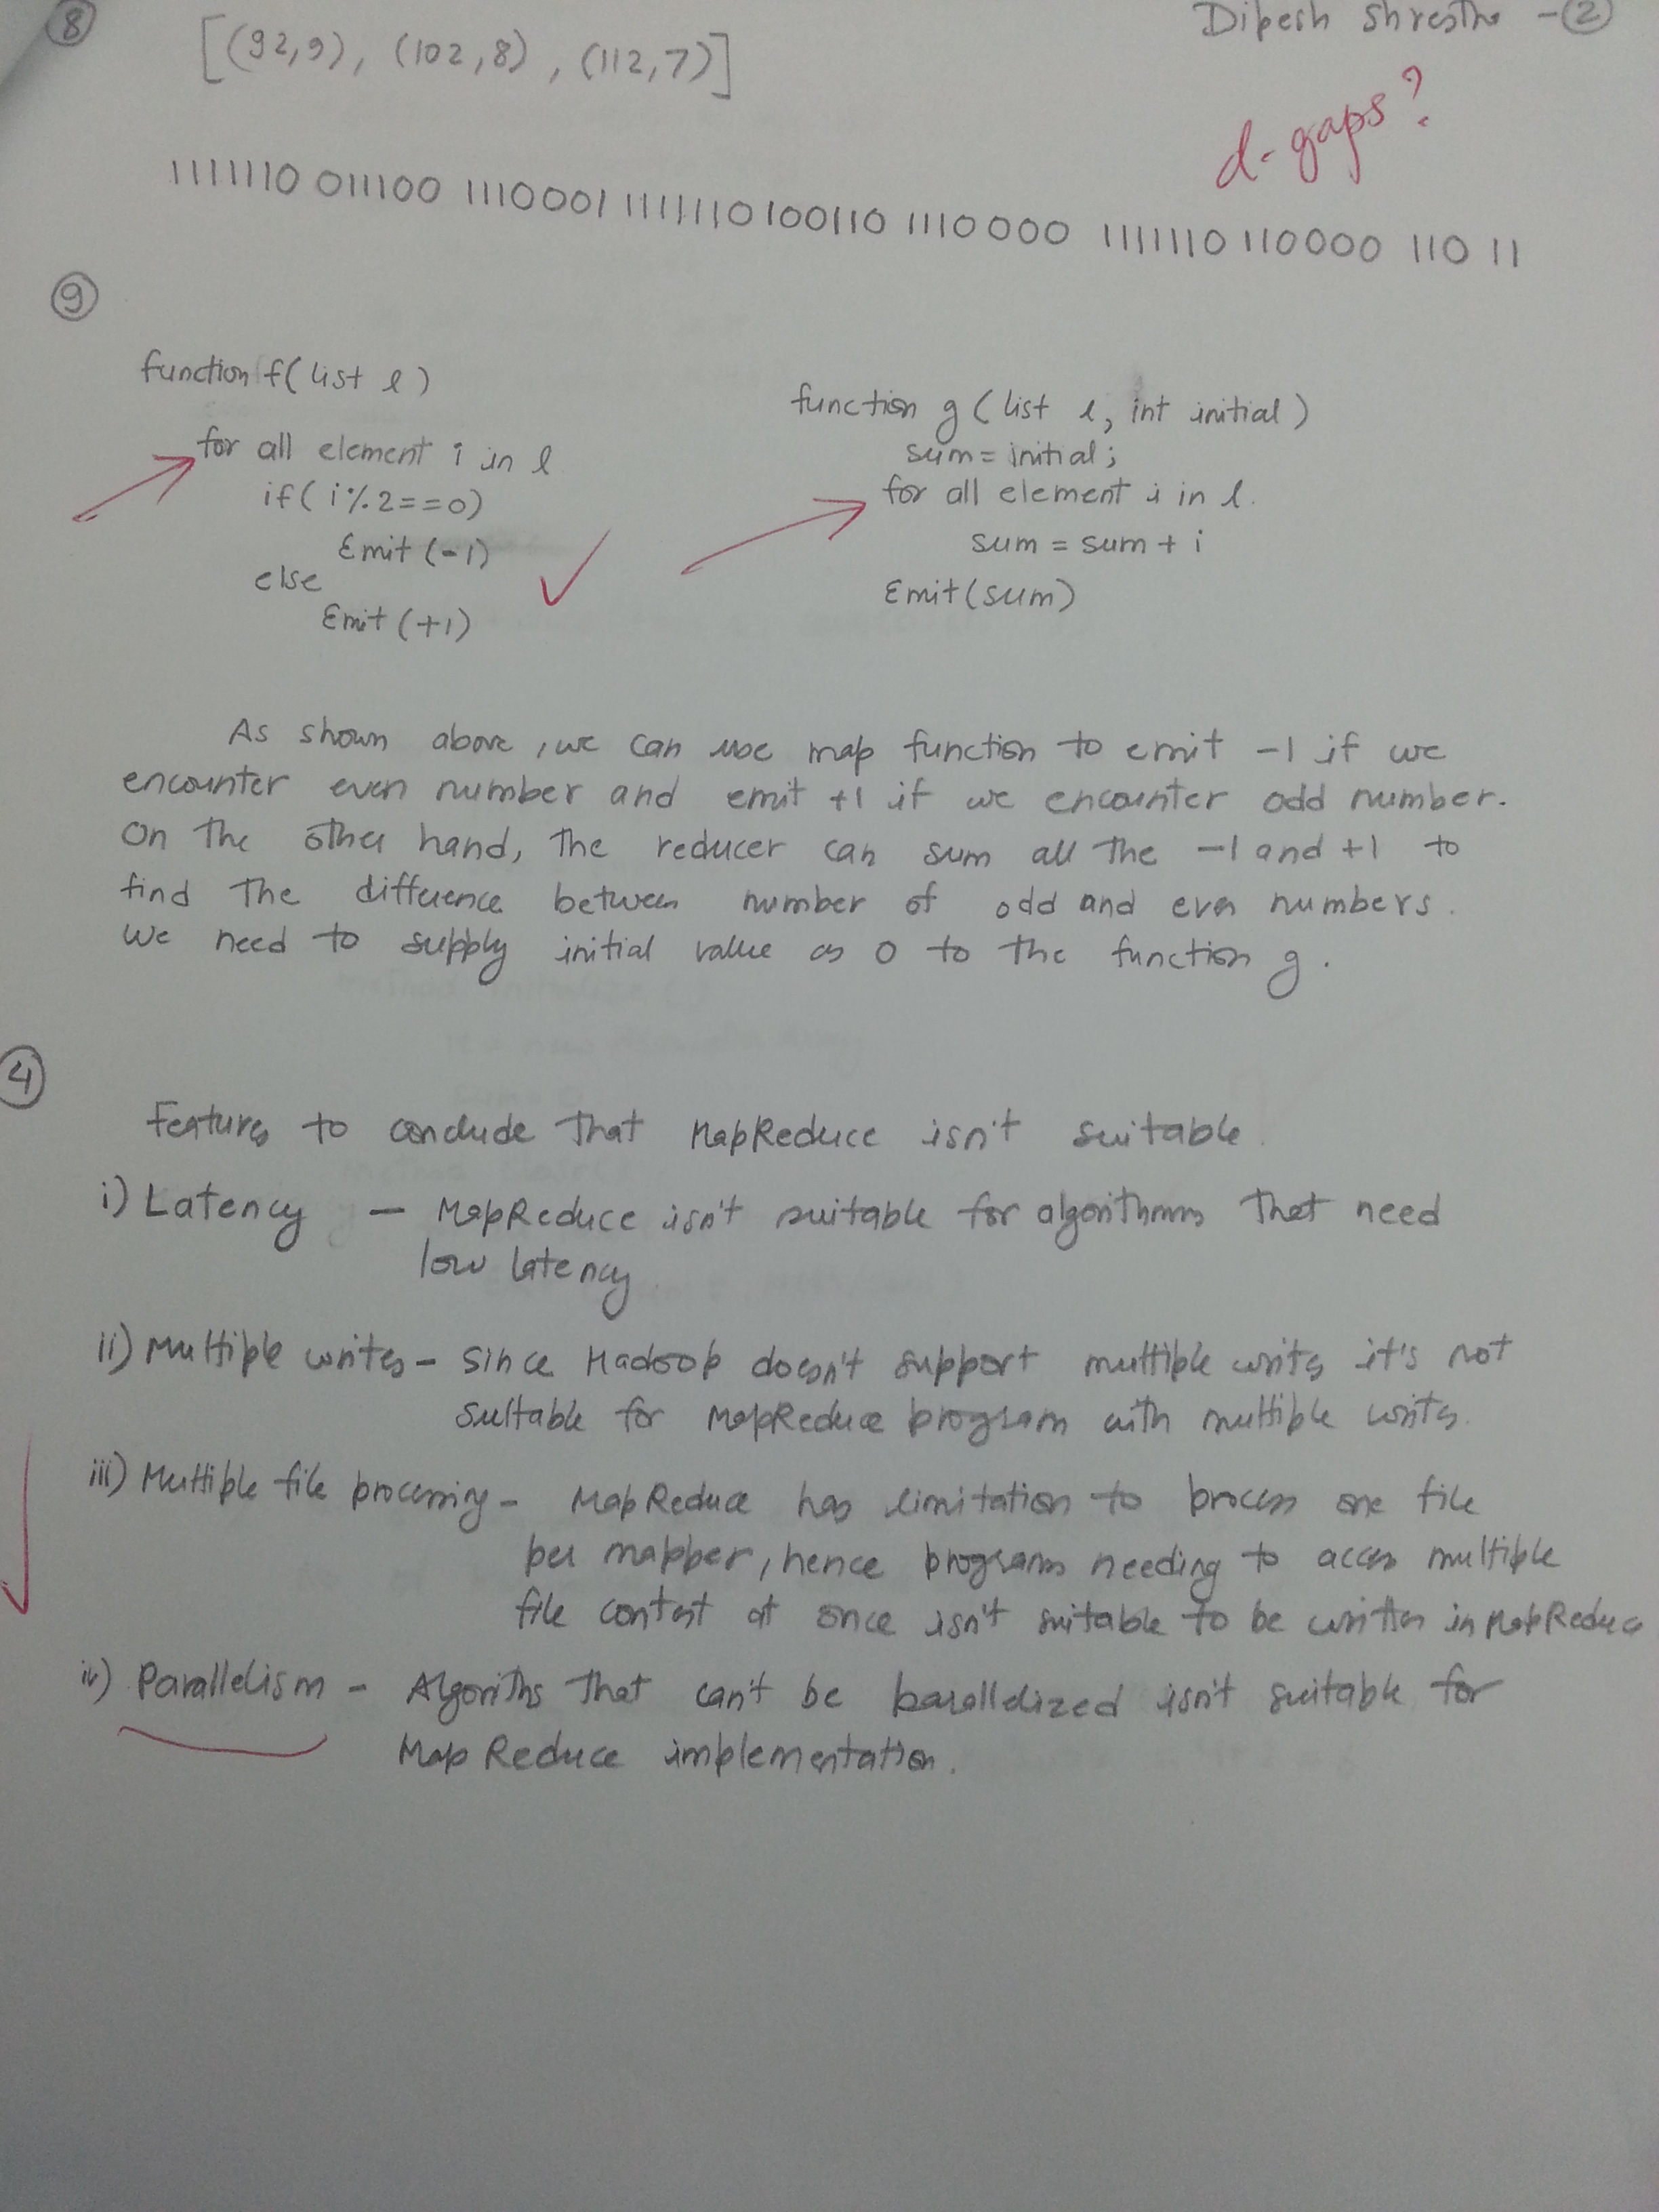 8
Dipesh Shrestha - 2
[(92,9), (102,8), (112,7)]
d-gaps?
1111110 011100 1110001 1111110100110 1110000 1111110 110000 110 11
9
function f( list l )
for all element i in l
if( i%2==0)
Emit (-1)
else
Emit (+1)
function g ( list l, int initial )
sum = initial;
for all element i in l.
sum = sum + i
Emit(sum)
As shown above, we can use map function to emit -1 if we
encounter even number and emit +1 if we encounter odd number.
On the other hand, the reducer can sum all the -1 and +1 to
find the difference between number of odd and even numbers.
We need to supply initial value as 0 to the function g.
4
Features to conclude that MapReduce isn't suitable.
i) Latency - MapReduce isn't suitable for algorithms that need
low latency
ii) Multiple writes - Since Hadoop doesn't support multiple writes it's not
suitable for MapReduce program with multiple writes.
iii) Multiple file processing - MapReduce has limitation to process one file
per mapper, hence programs needing to access multiple
file content at once isn't suitable to be written in MapReduce
iv) Parallelism - Algoriths that can't be parallelized isn't suitable for
Map Reduce implementation.